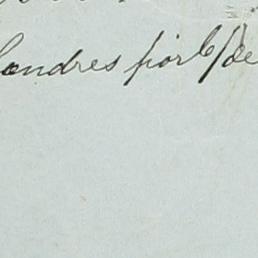 Londres por c/de